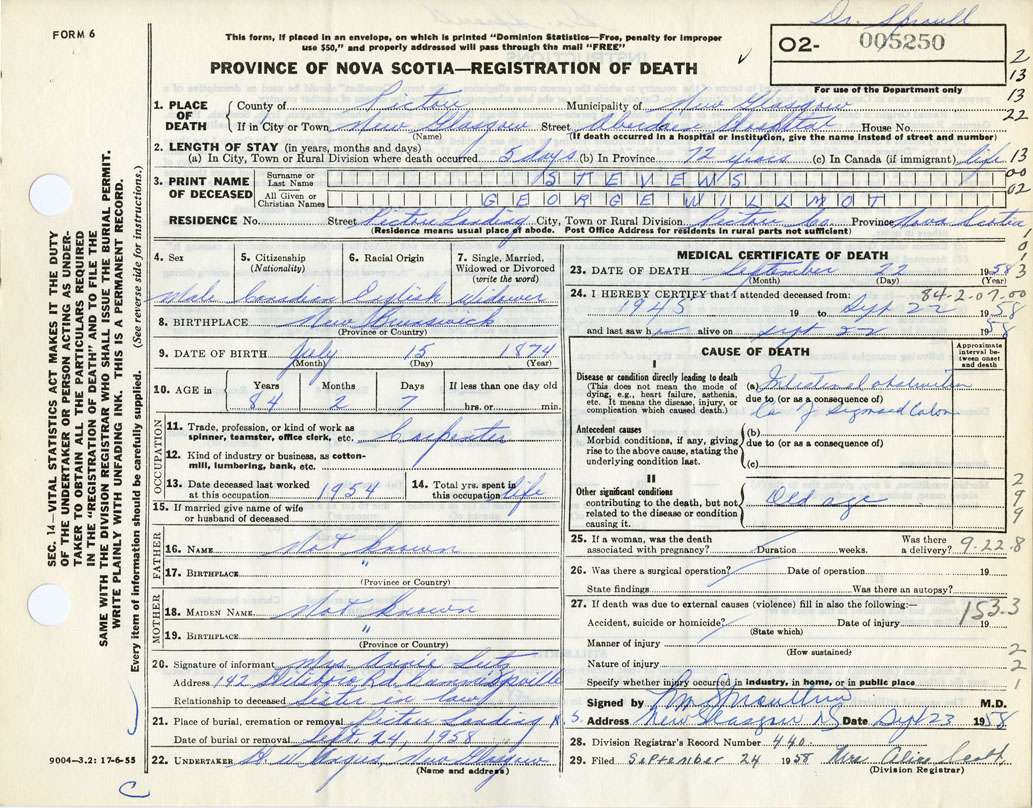 Dr. Sproull
FORM 6
This form, if placed in an envelope, on which is printed "Dominion Statistics—Free, penalty for improper
use $50," and properly addressed will pass through the mail "FREE"
O2- 005250
For use of the Department only
PROVINCE OF NOVA SCOTIA—REGISTRATION OF DEATH
2
13
13
22
13
00
02
1. PLACE OF DEATH
County of Pictou Municipality of New Glasgow
If in City or Town New Glasgow Street Aberdeen Hospital House No.
(Name) (If death occurred in a hospital or institution, give the name instead of street and number)
2. LENGTH OF STAY (in years, months and days)
(a) In City, Town or Rural Division where death occurred 5 days (b) In Province 72 years (c) In Canada (if immigrant) life
3. PRINT NAME OF DECEASED
Surname or Last Name STEVENS
All Given or Christian Names GEORGE WILLMOT
RESIDENCE No. Street Pictou Landing City, Town or Rural Division Pictou Co. Province Nova Scotia
(Residence means usual place of abode. Post Office Address for residents in rural parts not sufficient)
SEC. 14—VITAL STATISTICS ACT MAKES IT THE DUTY
OF THE UNDERTAKER OR PERSON ACTING AS UNDER-
TAKER TO OBTAIN ALL THE PARTICULARS REQUIRED
IN THE "REGISTRATION OF DEATH" AND TO FILE THE
SAME WITH THE DIVISION REGISTRAR WHO SHALL ISSUE THE BURIAL PERMIT.
WRITE PLAINLY WITH UNFADING INK. THIS IS A PERMANENT RECORD.
Every item of information should be carefully supplied. (See reverse side for instructions.)
4. Sex
Male
5. Citizenship (Nationality)
Canadian
6. Racial Origin
English
7. Single, Married, Widowed or Divorced (write the word)
Widower
8. BIRTHPLACE New Brunswick
(Province or Country)
9. DATE OF BIRTH July 15 1874
(Month) (Day) (Year)
10. AGE in Years Months Days If less than one day old
84 2 7 hrs. or min.
OCCUPATION
11. Trade, profession, or kind of work as
spinner, teamster, office clerk, etc. Carpenter
12. Kind of industry or business, as cotton-
mill, lumbering, bank, etc.
13. Date deceased last worked
at this occupation 1954
14. Total yrs. spent in
this occupation life
15. If married give name of wife
or husband of deceased
FATHER
16. NAME Not known
17. BIRTHPLACE "
(Province or Country)
MOTHER
18. MAIDEN NAME Not known
19. BIRTHPLACE "
(Province or Country)
20. Signature of informant Mrs Annie Lutz
Address 142 Rd
Relationship to deceased sister in law
21. Place of burial, cremation or removal Pictou Landing N
Date of burial or removal Sept. 24, 1958
22. UNDERTAKER H. W. New Glasgow
(Name and address)
9004—3.2: 17-6-55
MEDICAL CERTIFICATE OF DEATH
23. DATE OF DEATH September 22 1958
(Month) (Day)
24. I HEREBY CERTIFY that I attended deceased from: 84-2-07.00
1945 19 to Sept 22 1958
and last saw h alive on Sept 22 1958
CAUSE OF DEATH
Approximate interval between onset and death
I
Disease or condition directly leading to death
(This does not mean the mode of
dying, e.g., heart failure, asthenia,
etc. It means the disease, injury, or
complication which caused death.)
(a) Intestinal obstruction
due to (or as a consequence of)
Ca of Sigmoid Colon
Antecedent causes
Morbid conditions, if any, giving
rise to the above cause, stating the
underlying condition last.
(b)
due to (or as a consequence of)
(c)
II
Other significant conditions
contributing to the death, but not
related to the disease or condition
causing it.
Old age
2
9
9
9
25. If a woman, was the death
associated with pregnancy? Duration weeks. Was there a delivery? 9-22-8
26. Was there a surgical operation? Date of operation 19
State findings Was there an autopsy?
27. If death was due to external causes (violence) fill in also the following:— 153.3
Accident, suicide or homicide? Date of injury 19
(State which)
Manner of injury 2
(How sustained)
Nature of injury 2
Specify whether injury occurred in industry, in home, or in public place 1
Signed by M.D.
Address New Glasgow NS Date Sept 23 1958
28. Division Registrar's Record Number 440
29. Filed September 24 1958 Mrs Alice
(Division Registrar)
C